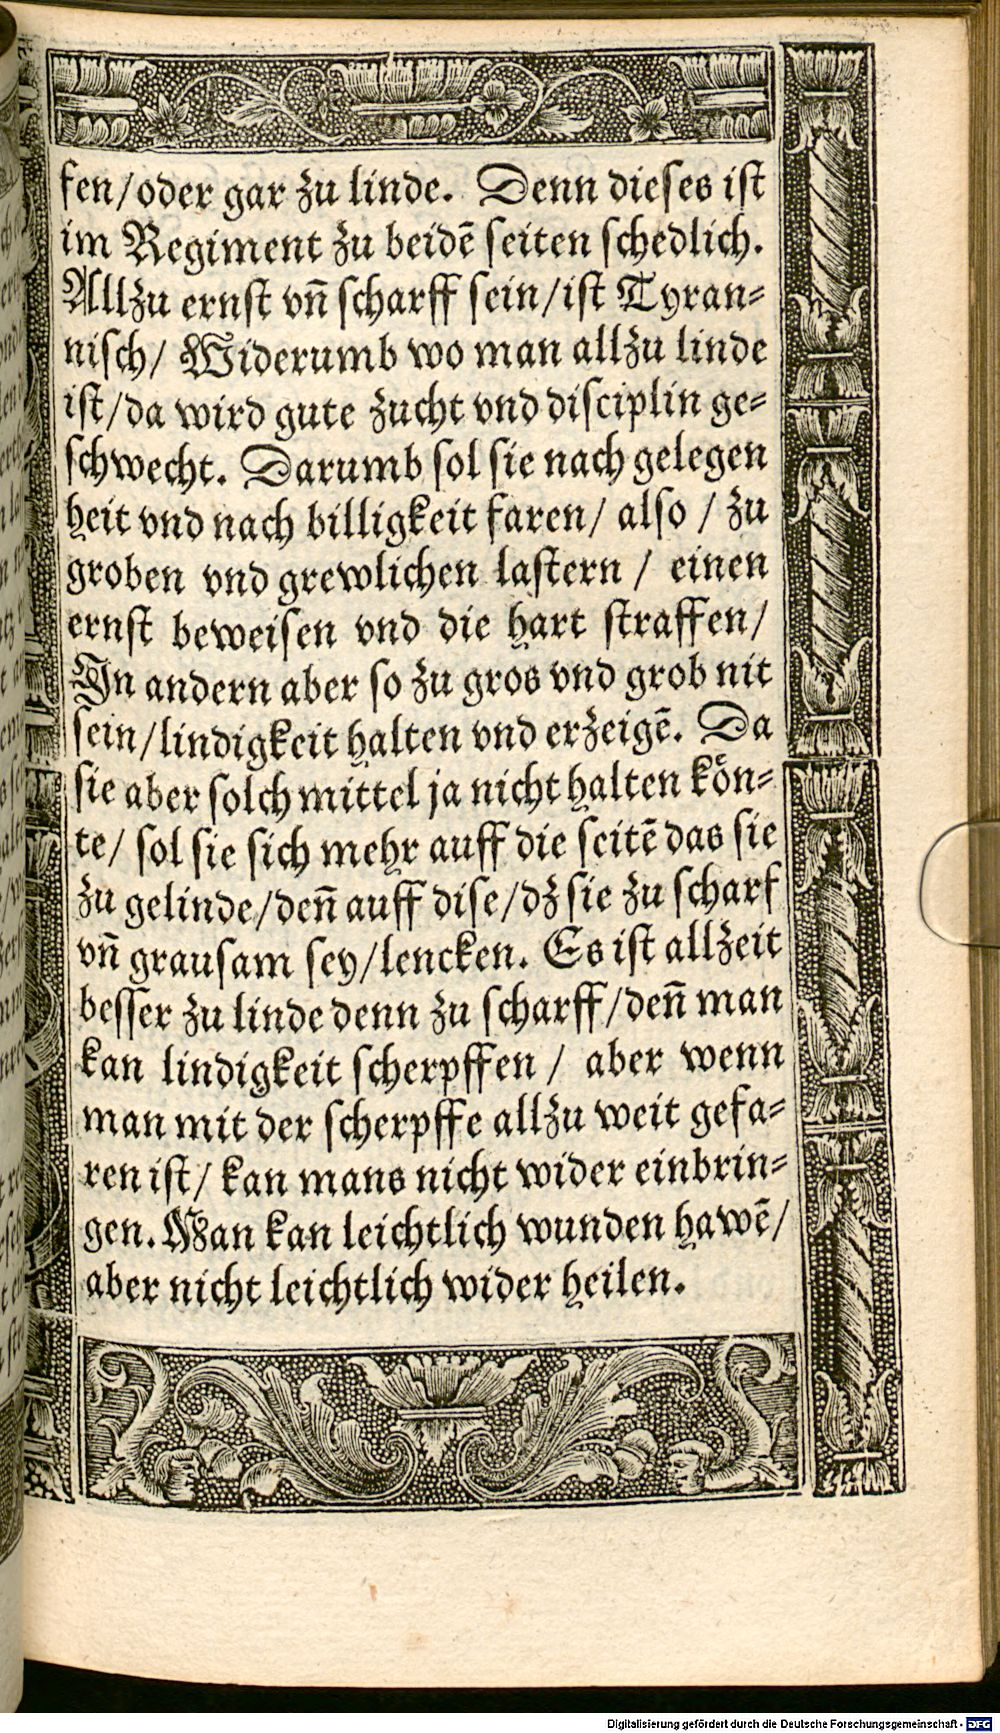 fen/oder gar zu linde. Denn dieses ist
im Regiment zu beidē seiten schedlich.
Allzu ernst vñ scharff sein/ist Tyran=
nisch/ Widerumb wo man allzu linde
ist/da wird gute zucht vnd disciplin ge=
schwecht. Darumb sol sie nach gelegen
heit vnd nach billigkeit faren/ also / zu
groben vnd grewlichen lastern / einen
ernst beweisen vnd die hart straffen/
In andern aber so zu gros vnd grob nit
sein/lindigkeit halten vnd erzeigē. Da
sie aber solch mittel ja nicht halten kön=
te/ sol sie sich mehr auff die seitē das sie
zu gelinde/deñ auff dise/dz sie zu scharf
vñ grausam sey/lencken. Es ist allzeit
besser zu linde denn zu scharff/deñ man
kan lindigkeit scherpffen / aber wenn
man mit der scherpffe allzu weit gefa=
ren ist/ kan mans nicht wider einbrin=
gen. Man kan leichtlich wunden hawē/
aber nicht leichtlich wider heilen.
Digitalisierung gefördert durch die Deutsche Forschungsgemeinschaft - DFG